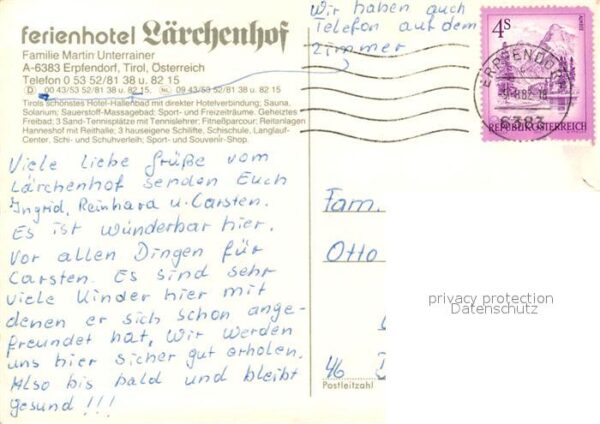 ferienhotel Lärchenhof
Familie Martin Unterrainer
A-6383 Erpfendorf, Tirol, Österreich
Telefon 0 53 52/81 38 u. 82 15
D 00 43/53 52/81 38 u. 82 15, NL 09 43/53 52/81 38 u. 82 15
Tirols schönstes Hotel-Hallenbad mit direkter Hotelverbindung; Sauna,
Solarium; Sauerstoff-Massagebad; Sport- und Freizeiträume. Geheiztes
Freibad; 3 Sand-Tennisplätze mit Tennislehrer; Fitneßparcour; Reitanlagen
Hanneshof mit Reithalle; 3 hauseigene Schilifte, Schischule, Langlauf-
Center, Schi- und Schuhverleih; Sport- und Souvenir-Shop.
Wir haben auch
Telefon auf dem
Zimmer
4S
ERPFENDORF
6383
REPUBLIK ÖSTERREICH
Viele liebe Grüße vom
Lärchenhof senden Euch
Ingrid, Reinhard u. Carsten.
Es ist wunderbar hier.
Vor allen Dingen für
Carsten. Es sind sehr
viele Kinder hier mit
denen er sich schon ange-
freundet hat. Wir werden
uns hier sicher gut erholen.
Also bis bald und bleibt
gesund!!!
Fam.
Otto
46
Postleitzahl
privacy protection
Datenschutz